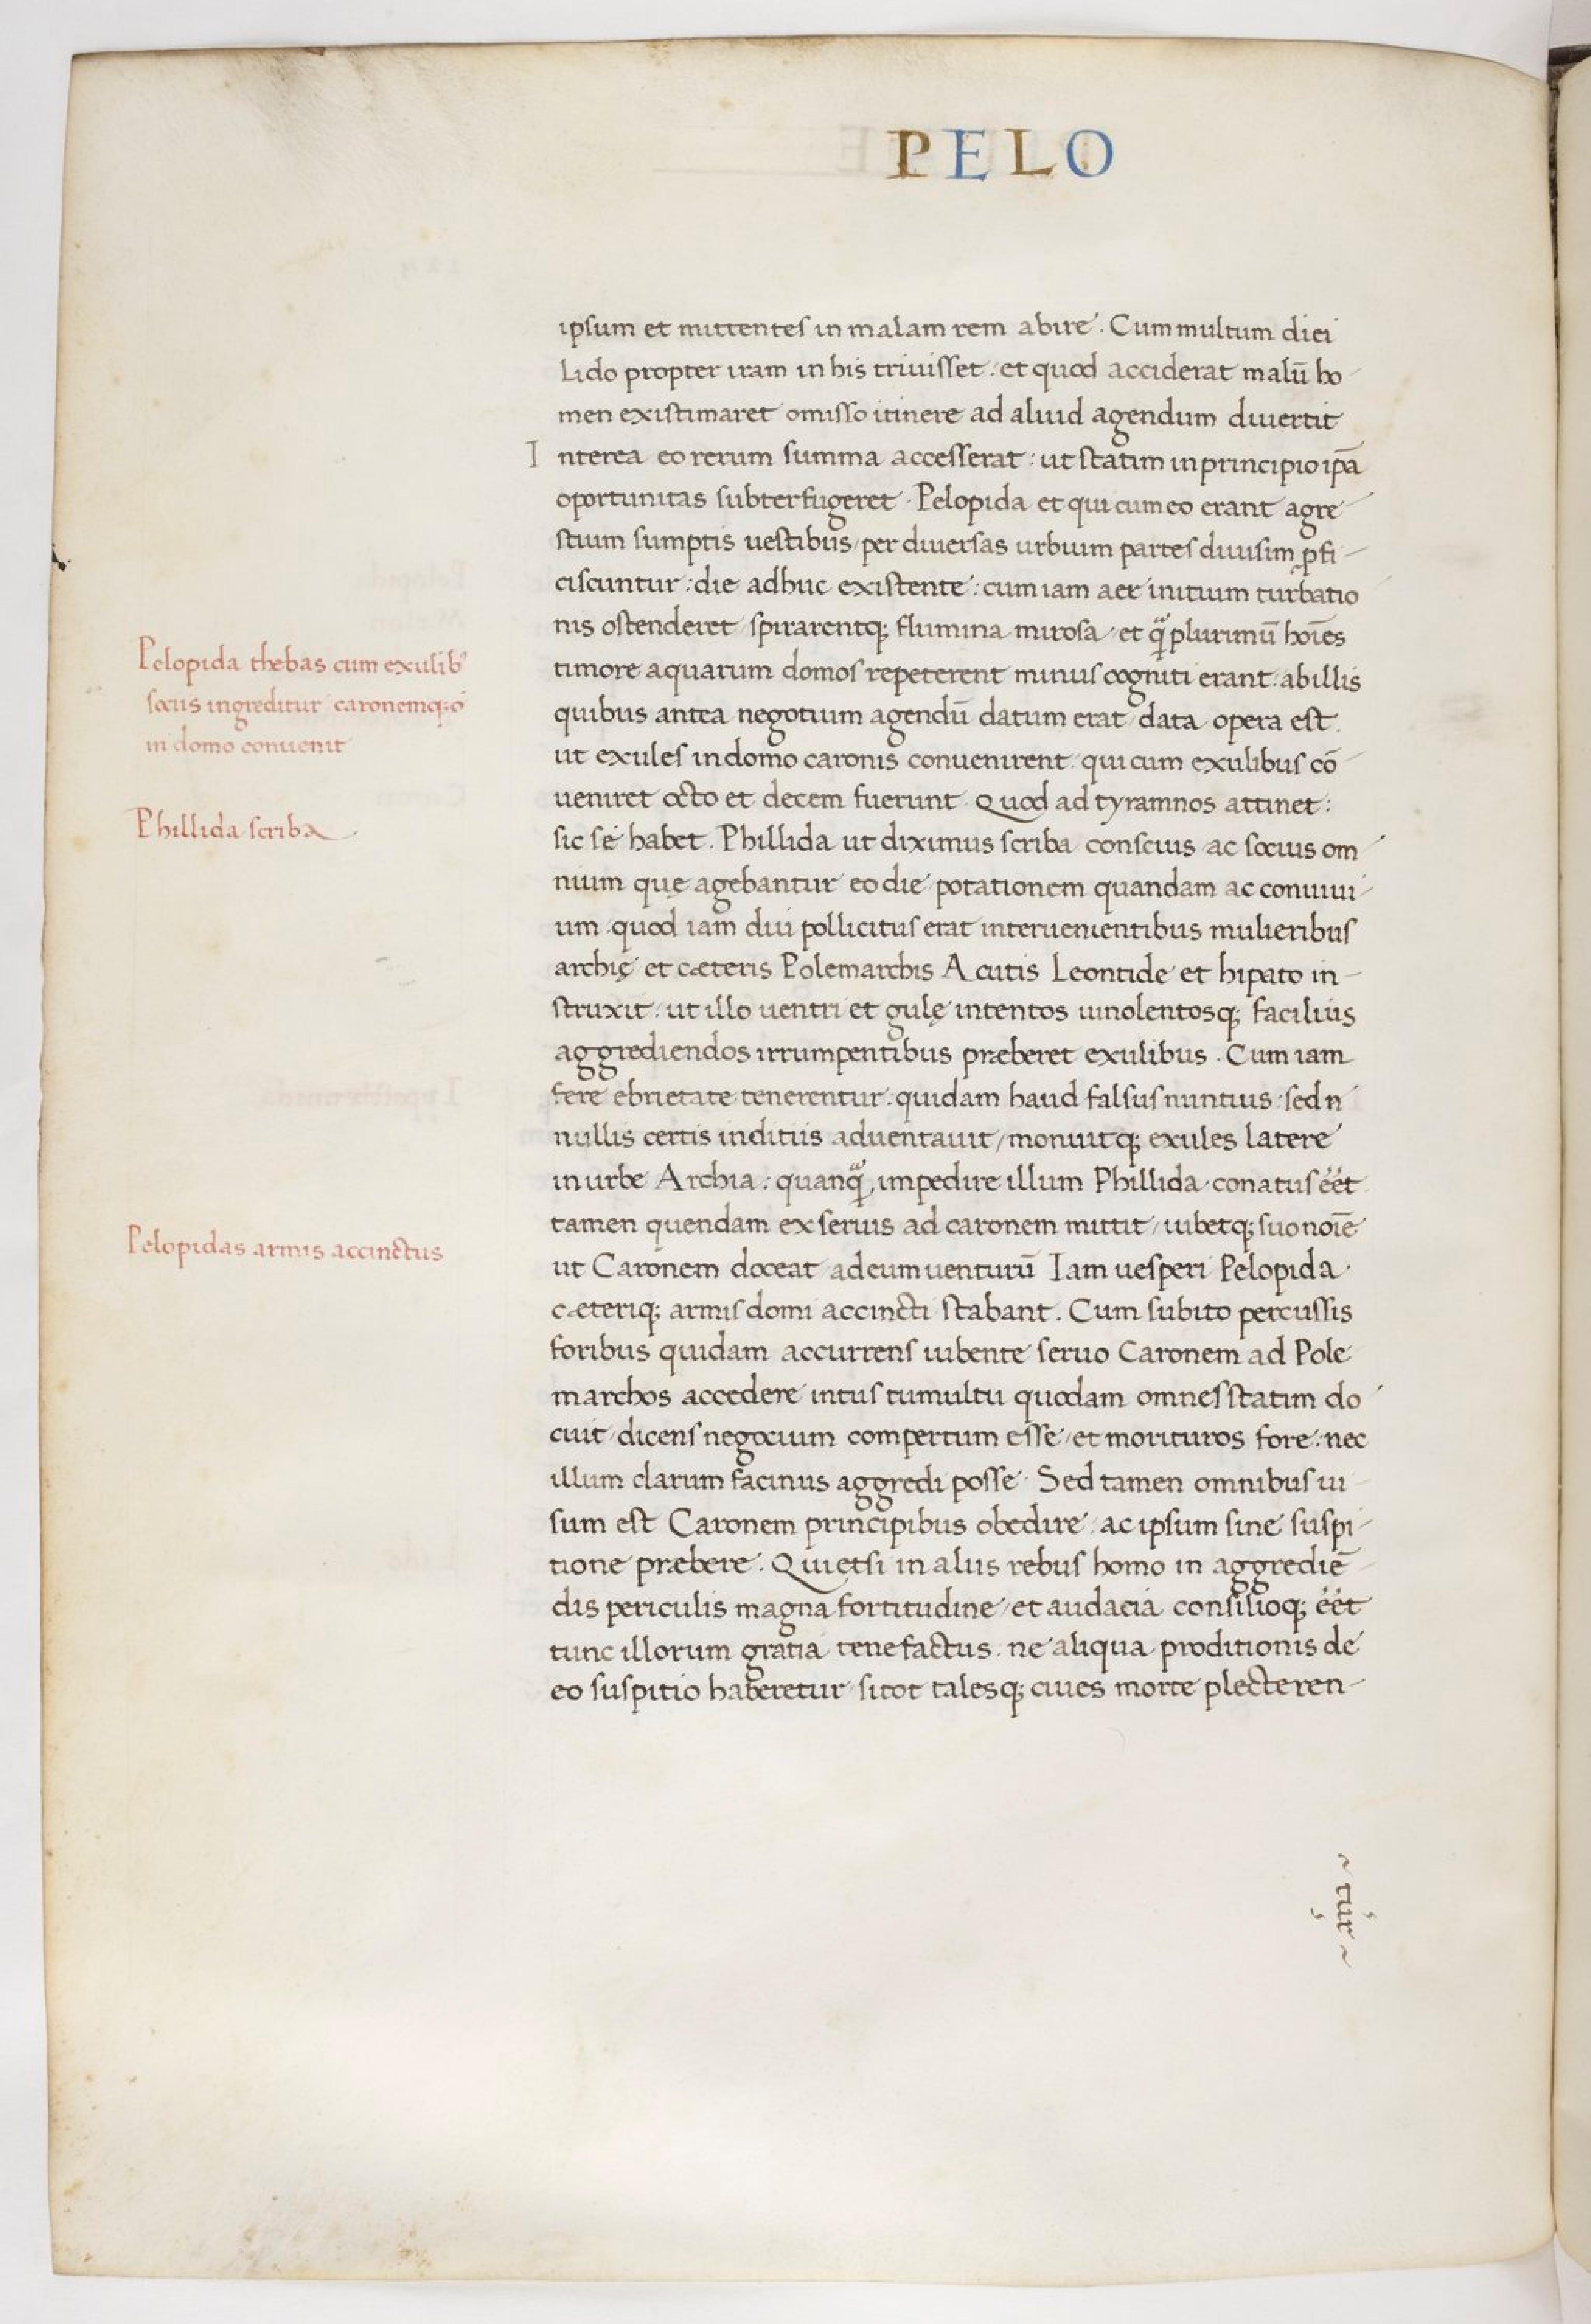 PELO
ipsum et mittentes in malam rem abire. Cum multum diei
Lido propter iram in his triuisset: et quod acciderat malū ho
men existimaret omisso itinere ad aliud agendum diuertit
Interea eo rerum summa accesserat: ut statim in principio ipā
oportunitas subterfugeret. Pelopida et qui cum eo erant agre
stium sumptis uestibus/ per diuersas urbium partes diuisim ꝓfi-
ciscuntur: die adhuc existente: cum iam aer initium turbatio
nis ostenderet spirarentq; flumina mirosa et q̄ plurimū hoīes
Pelopida thebas cum exulib᾽
sociis ingreditur caronemq; ō
in domo conuenit
timore aquarum domos repeterent minus cogniti erant: ab illis
quibus antea negotium agendū datum erat data opera est
ut exules in domo caronis conuenirent: qui cum exulibus cō
ueniret octo et decem fuerunt. Quod ad tyramnos attinet:
Phillida scriba
sic sé habet. Phillida ut diximus scriba conscius ac socius om
nium quę agebantur eo die potationem quandam ac conuiui-
um quod iam diu pollicitus erat interuenientibus mulieribus
archię et cæteris Polemarchis A cutis Leontide et hipato in-
struxit: ut illo uentri et gulę intentos uinolentosq; facilius
aggrediendos irrumpentibus præberet exulibus. Cum iam
fere ebrietate tenerentur: quidam haud falsus nuntius: sed n
nullis certis inditiis aduentauit/ monuitq; exules latere
in urbe Archia: quanq̄ impedire illum Phillida conatus éét
tamen quendam ex seruis ad caronem mittit/ iubetq; suo noīe
Pelopidas armis accinctus
ut Caronem doceat ad eum uenturū Iam uesperi Pelopida
cæteriq; armis domi accincti stabant. Cum subito percussis
foribus quidam accurrens iubente seruo Caronem ad Pole
marchos accedere intus tumultu quodam omnes statim do
cuit dicens negocium compertum esse/ et morituros fore: nec
illum clarum facinus aggredi posse. Sed tamen omnibus ui
sum est Caronem principibus obedire: ac ipsum sine suspi-
tione præbere. Qui etsi in aliis rebus homo in aggrediē
dis periculis magna fortitudine/ et audacia consilioq; éét
tunc illorum gratia tenefactus. ne aliqua proditionis de
eo suspitio haberetur si tot talesq; ciues morte plecteren-
~ tur ~